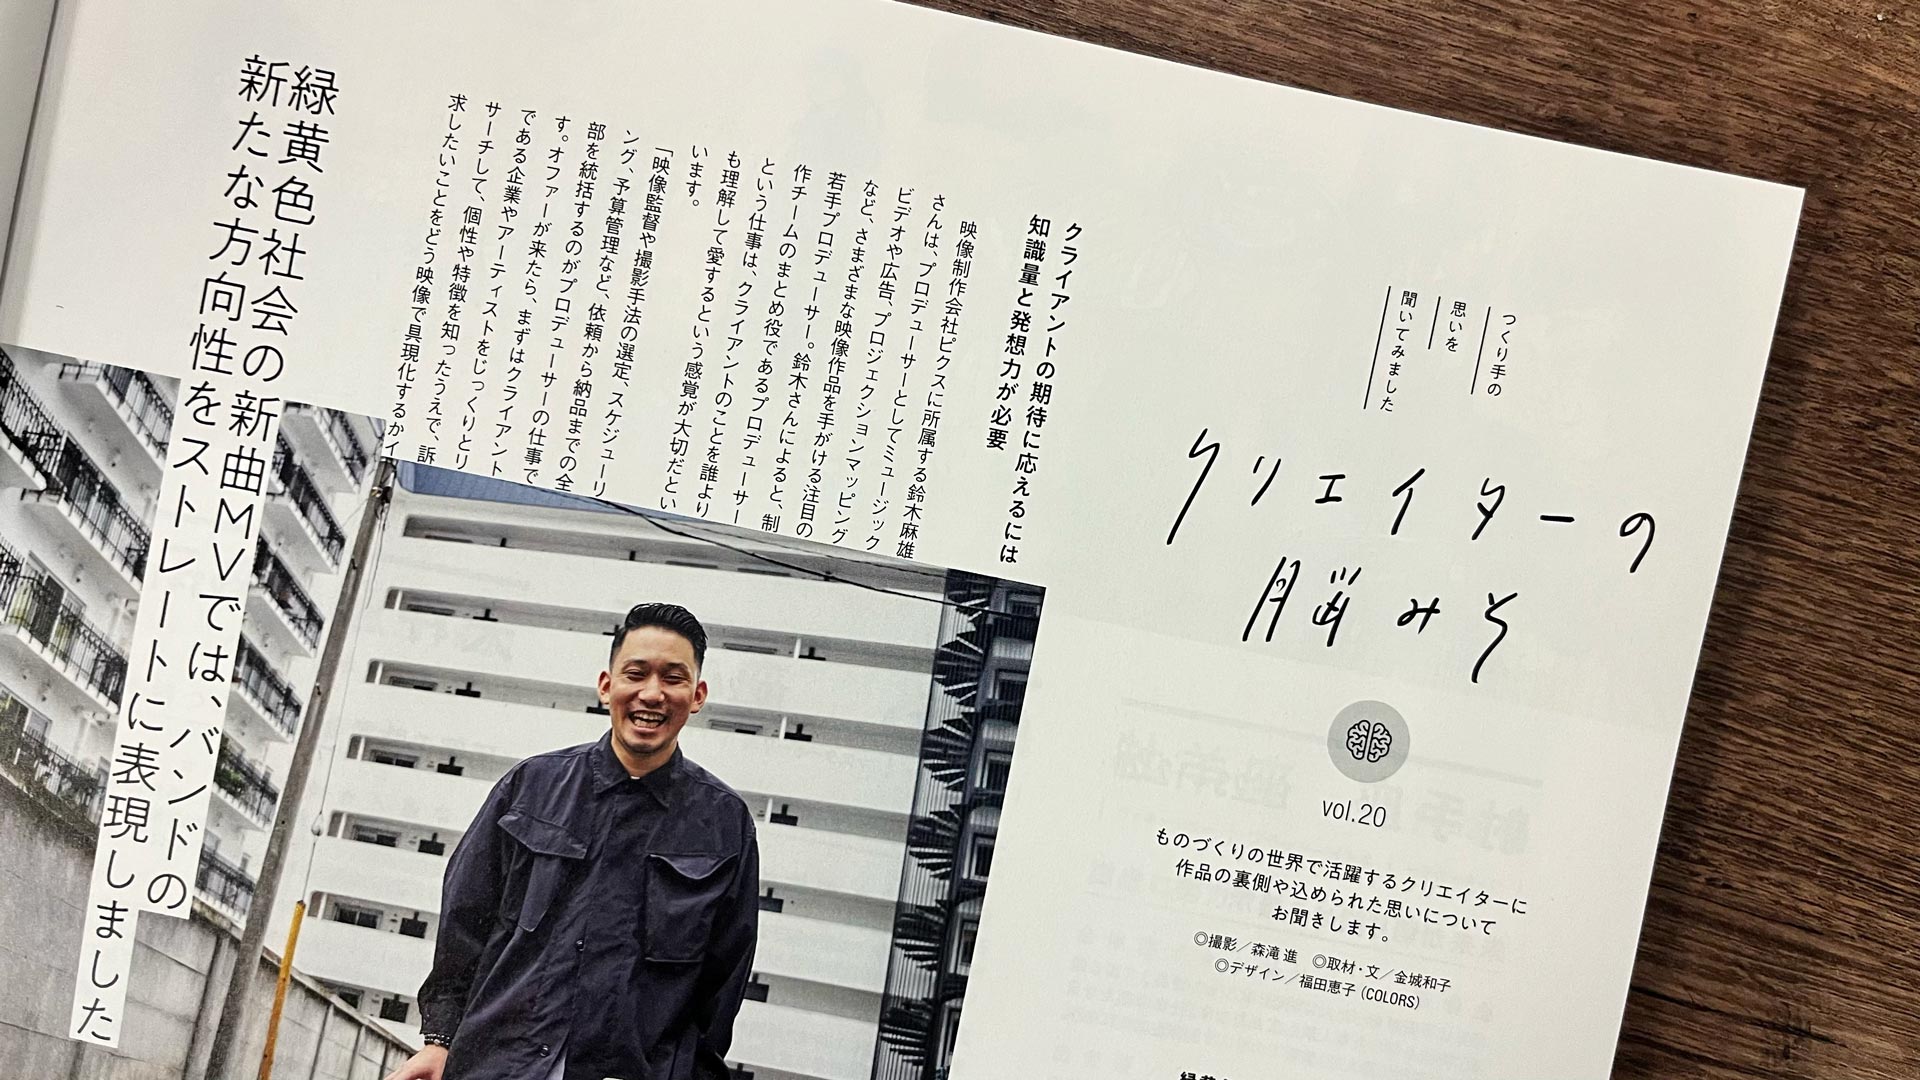 つくり手の
思いを
聞いてみました
クリエイターの
脳みそ
vol.20
ものづくりの世界で活躍するクリエイターに
作品の裏側や込められた思いについて
お聞きします。
◎撮影／森滝 進　◎取材・文／金城和子
◎デザイン／福田恵子 (COLORS)
クライアントの期待に応えるには
知識量と発想力が必要
映像制作会社ピクスに所属する鈴木麻雄
さんは、プロデューサーとしてミュージック
ビデオや広告、プロジェクションマッピング
など、さまざまな映像作品を手がける注目の
若手プロデューサー。鈴木さんによると、制
作チームのまとめ役であるプロデューサー
という仕事は、クライアントのことを誰より
も理解して愛するという感覚が大切だとい
います。
「映像監督や撮影手法の選定、スケジューリ
ング、予算管理など、依頼から納品までの全
部を統括するのがプロデューサーの仕事で
す。オファーが来たら、まずはクライアント
である企業やアーティストをじっくりとリ
サーチして、個性や特徴を知ったうえで、訴
求したいことをどう映像で具現化するかイ
緑黄色社会の新曲MVでは、バンドの
新たな方向性をストレートに表現しました